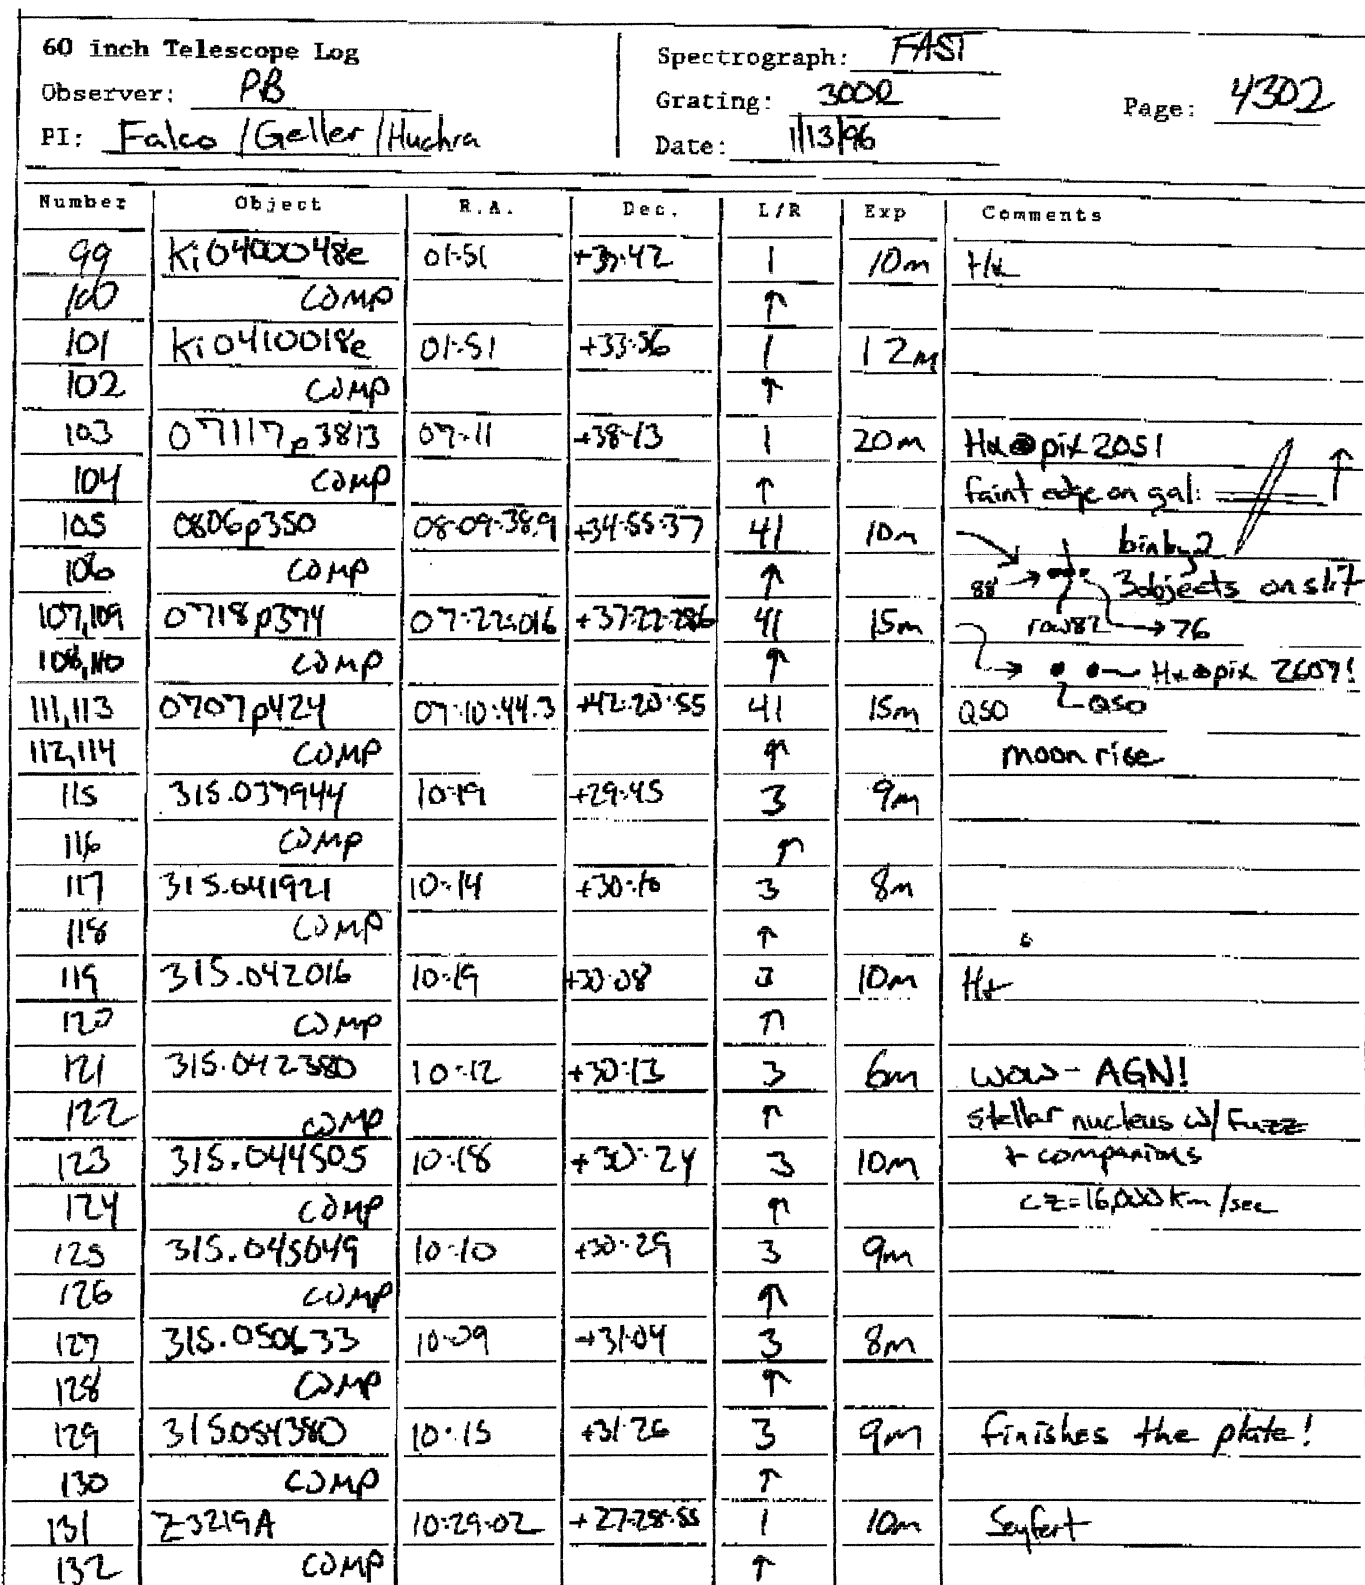 60 inch Telescope Log
Observer: PB
PI: Falco / Geller / Huchra
Spectrograph: FAST
Grating: 300l
Date: 1/13/96
Page: 4302
Number Object R.A. Dec. L/R Exp Comments
99 ki0400048e 01:51 1 10m Hα
100 COMP ↑
101 ki0410018e 01:51 +33:56 1 12m
102 COMP ↑
103 07117p3813 07:11 +38:13 1 20m Hα@pix 2051
104 COMP ↑ faint edge on gal:
105 0806p350 08:09:38.9 +34:55:37 41 10m binary?
106 COMP ↑ 88 → 3objects on slit
107,109 0718p374 07:22:01.6 +37:22:28.6 41 15m row82 → 76
108,110 COMP ↑ → Hα@pix 2607!
111,113 0707p424 07:10:44.3 +42:20:55 41 15m QSO QSO
112,114 COMP ↑ moon rise
115 315.037944 10:19 +29:45 3 9m
116 COMP ↑
117 315.041921 10:14 +30:10 3 8m
118 COMP ↑
119 315.042016 10:19 +30:08 3 10m Hα
120 COMP ↑
121 315.042380 10:12 +30:13 3 6m WOW - AGN!
122 COMP ↑ stellar nucleus w/ fuzz
123 315.044505 10:18 +30:24 3 10m + companions
124 COMP ↑ cz=16,000 km/sec
125 315.045049 10:10 +30:29 3 9m
126 COMP ↑
127 315.050633 10:09 +31:04 3 8m
128 COMP ↑
129 315.054380 10:15 +31:26 3 9m finishes the plate!
130 COMP ↑
131 Z3219A 10:29:02 +27:28:55 1 10m Seyfert
132 COMP ↑